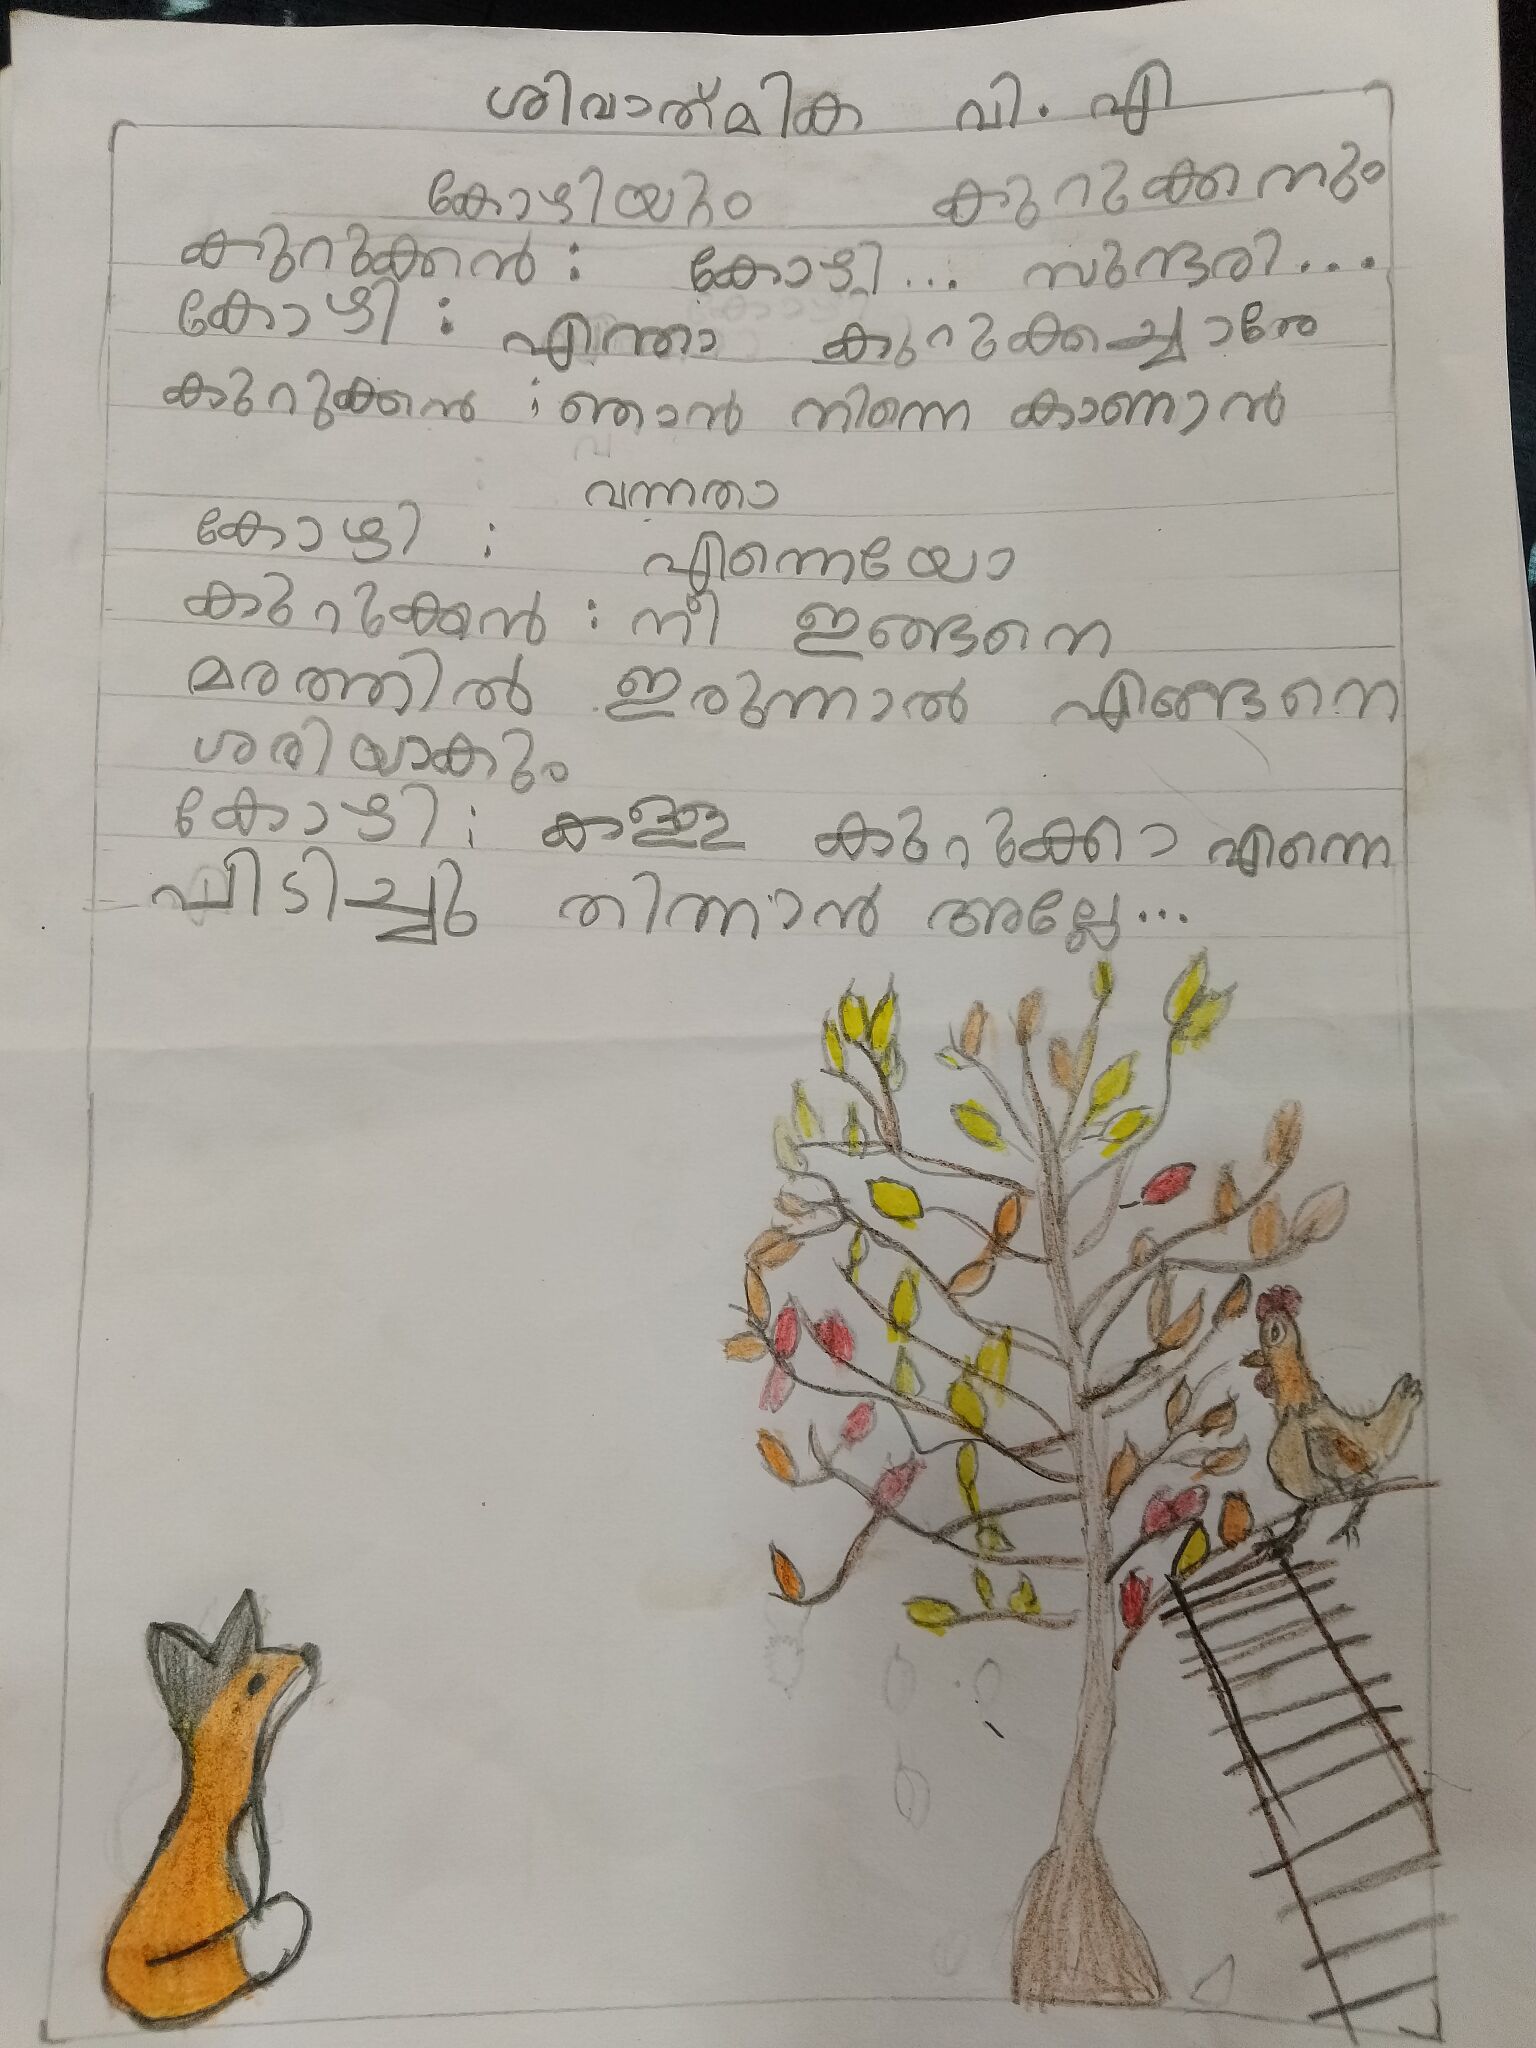 ശിവാത്മിക വി. എ
കോഴിയും കുറുക്കനും
കുറുക്കൻ : കോഴി... സുന്ദരി...
കോഴി : എന്താ കുറുക്കച്ചാരേ
കുറുക്കൻ : ഞാൻ നിന്നെ കാണാൻ
വന്നതാ
കോഴി : എന്നെയോ
കുറുക്കൻ : നീ ഇങ്ങനെ
മരത്തിൽ ഇരുന്നാൽ എങ്ങനെ
ശരിയാകും
കോഴി : കള്ള കുറുക്കാ എന്നെ
പിടിച്ചു തിന്നാൻ അല്ലേ...